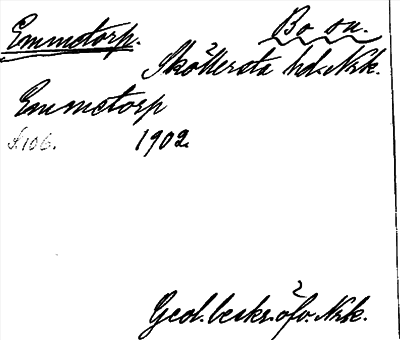 Emmetorp. Bo sn.
Sköllersta hd. Nrk.
Emmetorp
S. 106. 1902.
Geol. beskr. öfv. Nrk.